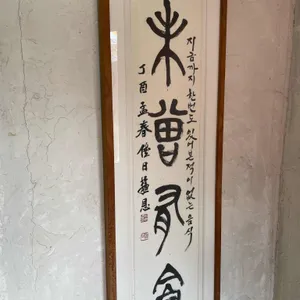 未曾有食
지금까지 한번도 있어본적이 없는 음식
丁酉孟春佳日